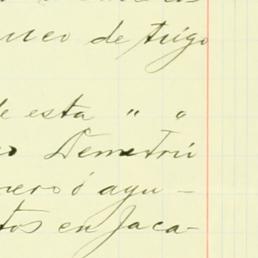 uco de trigo
de esta " "
o Demetrio
nero ó ayu-
tos en Jaca-